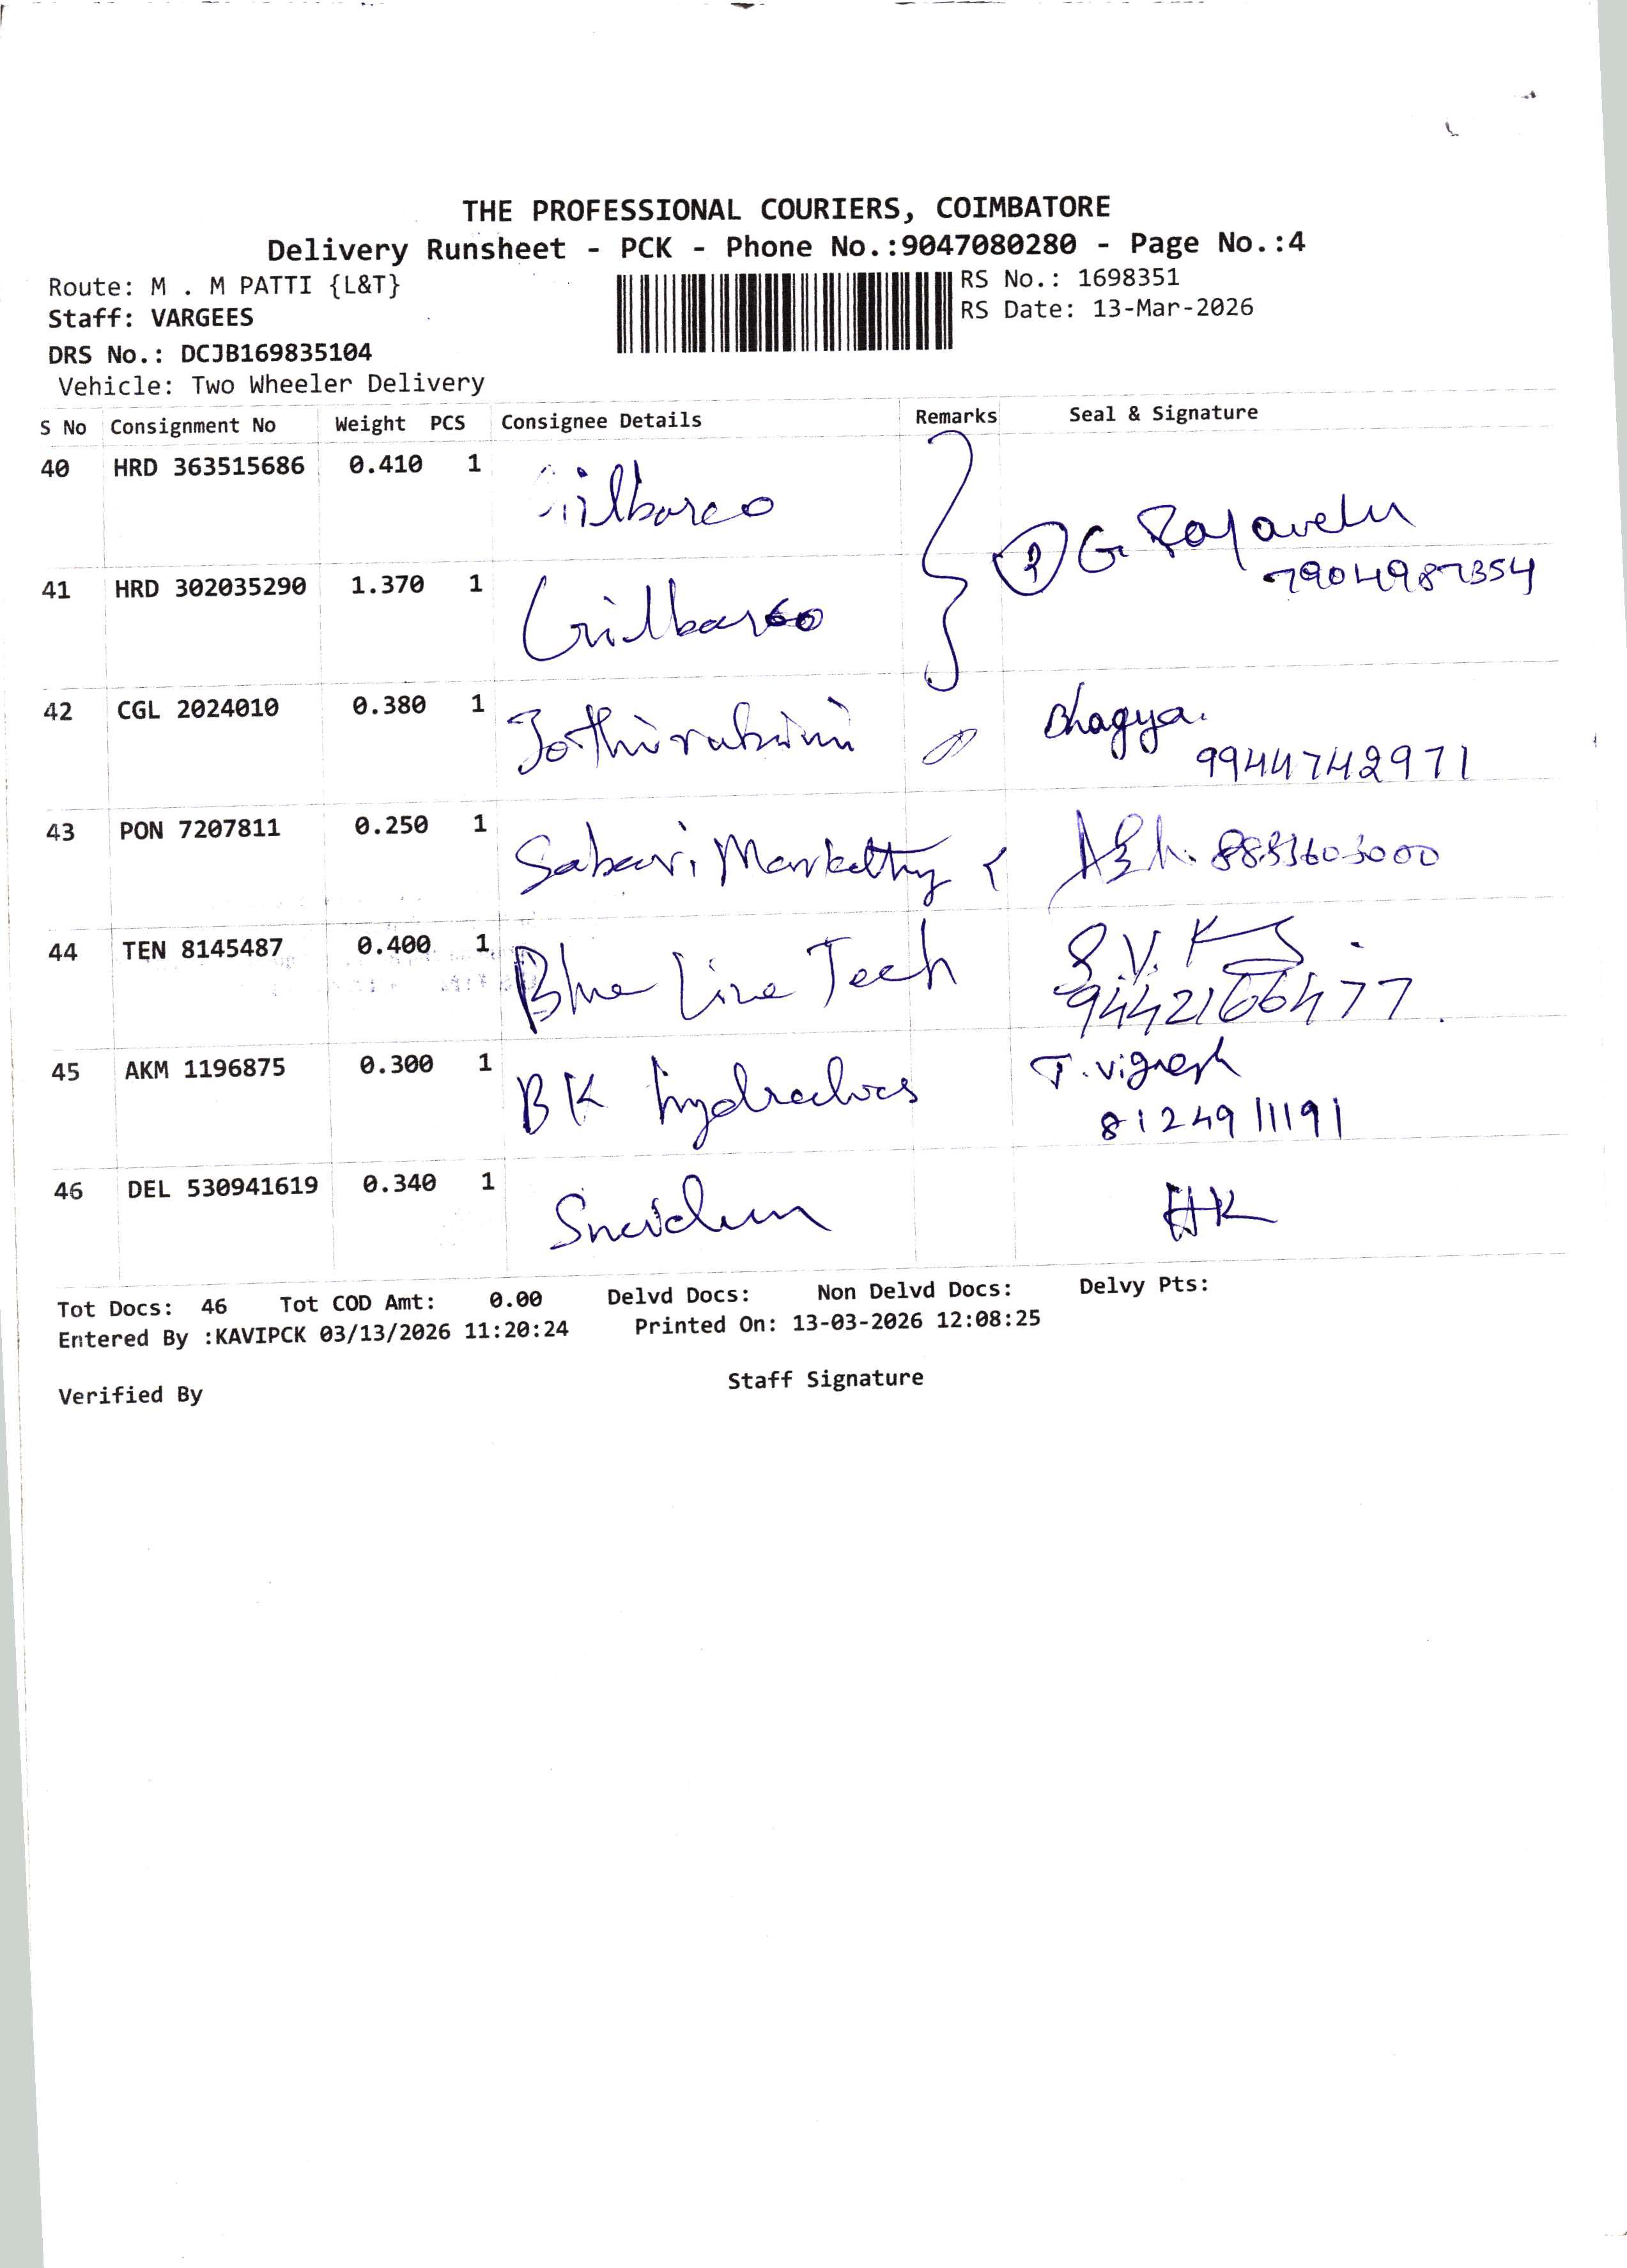 THE PROFESSIONAL COURIERS, COIMBATORE
Delivery Runsheet - PCK - Phone No.:9047080280 - Page No.:4
Route: M . M PATTI {L&T}
RS No.: 1698351
Staff: VARGEES
RS Date: 13-Mar-2026
DRS No.: DCJB169835104
Vehicle: Two Wheeler Delivery
S No Consignment No Weight PCS Consignee Details Remarks Seal & Signature
40 HRD 363515686 0.410 1 Gilbarco
G. Rajavelu
7904987354
41 HRD 302035290 1.370 1 Gilbarco
42 CGL 2024010 0.380 1 Bhagya.
9944742971
43 PON 7207811 0.250 1 Sabari Marketing
44 TEN 8145487 0.400 1 Blue Line Tech S.V.K
9442166477.
45 AKM 1196875 0.300 1 BK hydraulics T. Vignesh
8124911191
46 DEL 530941619 0.340 1
Tot Docs: 46 Tot COD Amt: 0.00 Delvd Docs: Non Delvd Docs: Delvy Pts:
Entered By :KAVIPCK 03/13/2026 11:20:24 Printed On: 13-03-2026 12:08:25
Verified By Staff Signature